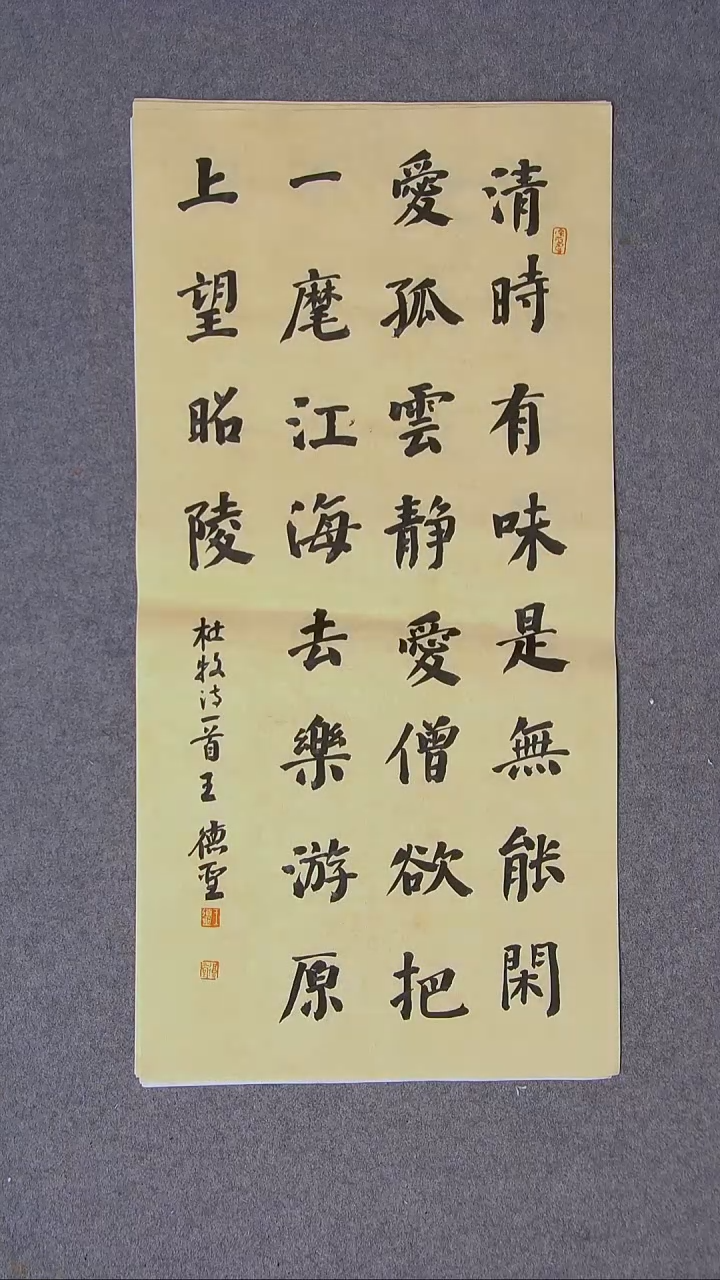 清時有味是無能閑
愛孤雲静愛僧欲把
一麾江海去樂游原
上望昭陵
杜牧诗一首王德聖